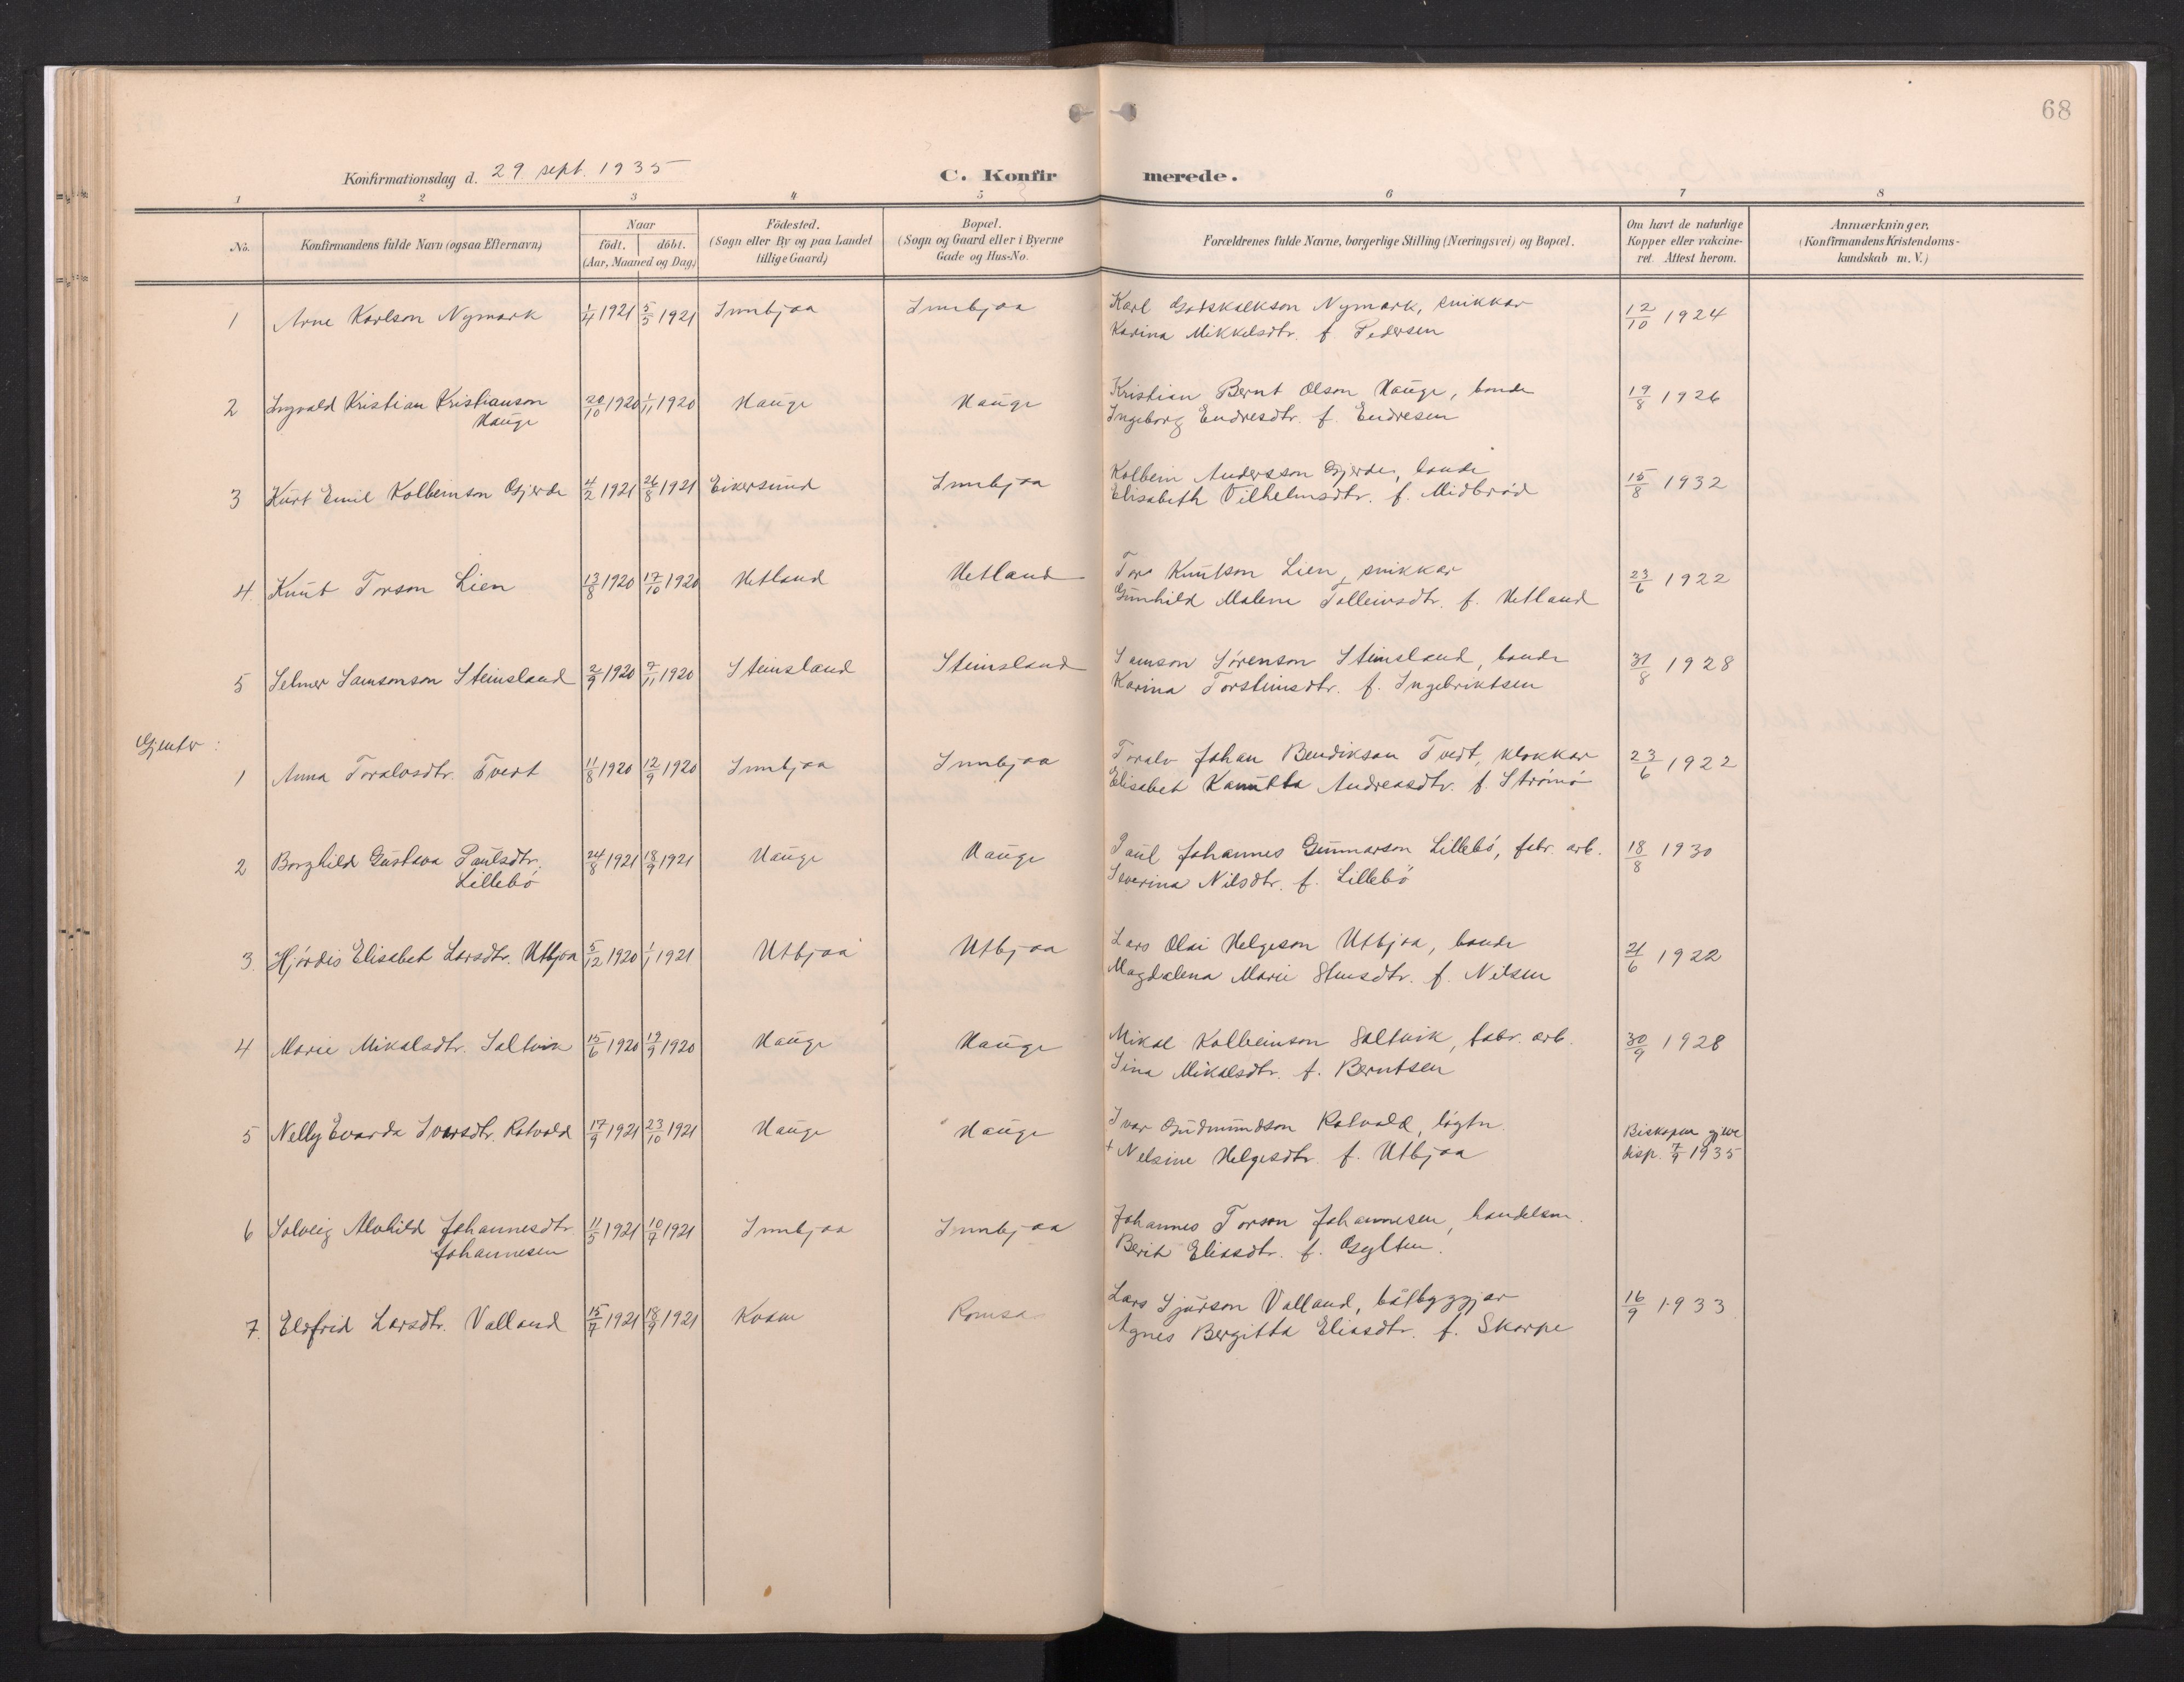 68
Konfirmationsdag d. 29 sept. 1935
C. Konfirmerede.
1 2 3 4 5 6 7 8
No.
Konfirmandens fulde Navn (ogsaa Efternavn)
Naar
födt. döbt.
(Aar, Maaned og Dag)
Födested.
(Sogn eller By og paa Landet
tillige Gaard)
Bopæl.
(Sogn og Gaard eller i Byerne
Gade og Hus-No.
Forældrenes fulde Navne, borgerlige Stilling (Næringsvei) og Bopæl.
Om havt de naturlige
Kopper eller vakcine-
ret. Attest herom.
Anmærkninger.
(Konfirmandens Kristendoms-
kundskab m. V.)
1 Arne Karlson Nymark 1/4 1921 5/5 1921 Innbjoa Innbjoa Karl Gotskalkson Nymark, snikkar 12/10 1924
Karina Mikkelsdtr. f. Pedersen
2 Ingvald Kristian Kristianson 20/10 1920 1/11 1920 Hauge Hauge Kristian Bernt Olson Hauge, bonde 19/8 1926
Hauge Ingeborg Endresdtr. f. Endresen
3 Kurt Emil Kolbeinson Gjerde 4/2 1921 26/8 1921 Eikersund Innbjoa Kolbein Andersson Gjerde, bonde 15/8 1932
Elisabeth Vilhelmsdtr. f. Midbröd
4. Knut Torson Lien 13/8 1920 17/10 1920 Hetland Hetland Tor Knutson Lien, snikkar 23/6 1922
Gunhild Malene Tolleivsdtr. f. Hetland
5 Selmer Samsonson Steinsland 2/9 1920 7/11 1920 Steinsland Steinsland Samson Sörenson Steinsland, bonde 31/8 1928
Karina Torsteinsdtr. f. Ingebriktsen
Gjentor:
1 Anna Toralvsdtr. Tveit 11/8 1920 12/9 1920 Innbjoa Innbjoa Toralv Johan Bendikson Tveit, klokkar 23/6 1922
Elisabet Kanutta Andreasdtr. f. Strömö
2 Borghild Gustava Paulsdtr. 24/8 1921 18/9 1921 Hauge Hauge Paul Johannes Gunnarson Lillebö, fabr. arb. 18/8 1930
Lillebö Severina Nilsdtr. f. Lillebö
3. Hjördis Elisabet Larsdtr. Utbjoa 5/12 1920 1/1 1921 Utbjoa Utbjoa Lars Olai Helgeson Utbjoa, bonde 21/6 1922
Magdalena Marie Stensdtr. f. Nilsen
4 Marie Mikalsdtr. Saltvik 15/6 1920 19/9 1920 Hauge Hauge Mikal Kolbeinson Saltvik, fabr. arb. 30/9 1928
Sina Mikalsdtr. f. Berntsen
5 Nelly Evarda Ivarsdtr. Rotvold 17/9 1921 23/10 1921 Hauge Hauge Ivar Gudmundson Rotvold, lögtn. Biskopen gjeve
+ Nelsine Helgesdtr. f. Utbjoa disp. 7/9 1935
6 Solveig Alvhild Johannesdtr. 11/5 1921 10/7 1921 Innbjoa Innbjoa Johannes Torson Johannesen, handelsm.
Johannesen Berit Eliasdtr. f. Gylten.
7. Eldfrid Larsdtr. Valland 15/7 1921 18/9 1921 Kvam Romsa Lars Sjurson Valland, båtbyggjar 16/9 1933
Agnes Bergitta Eliasdtr. f. Skarpe